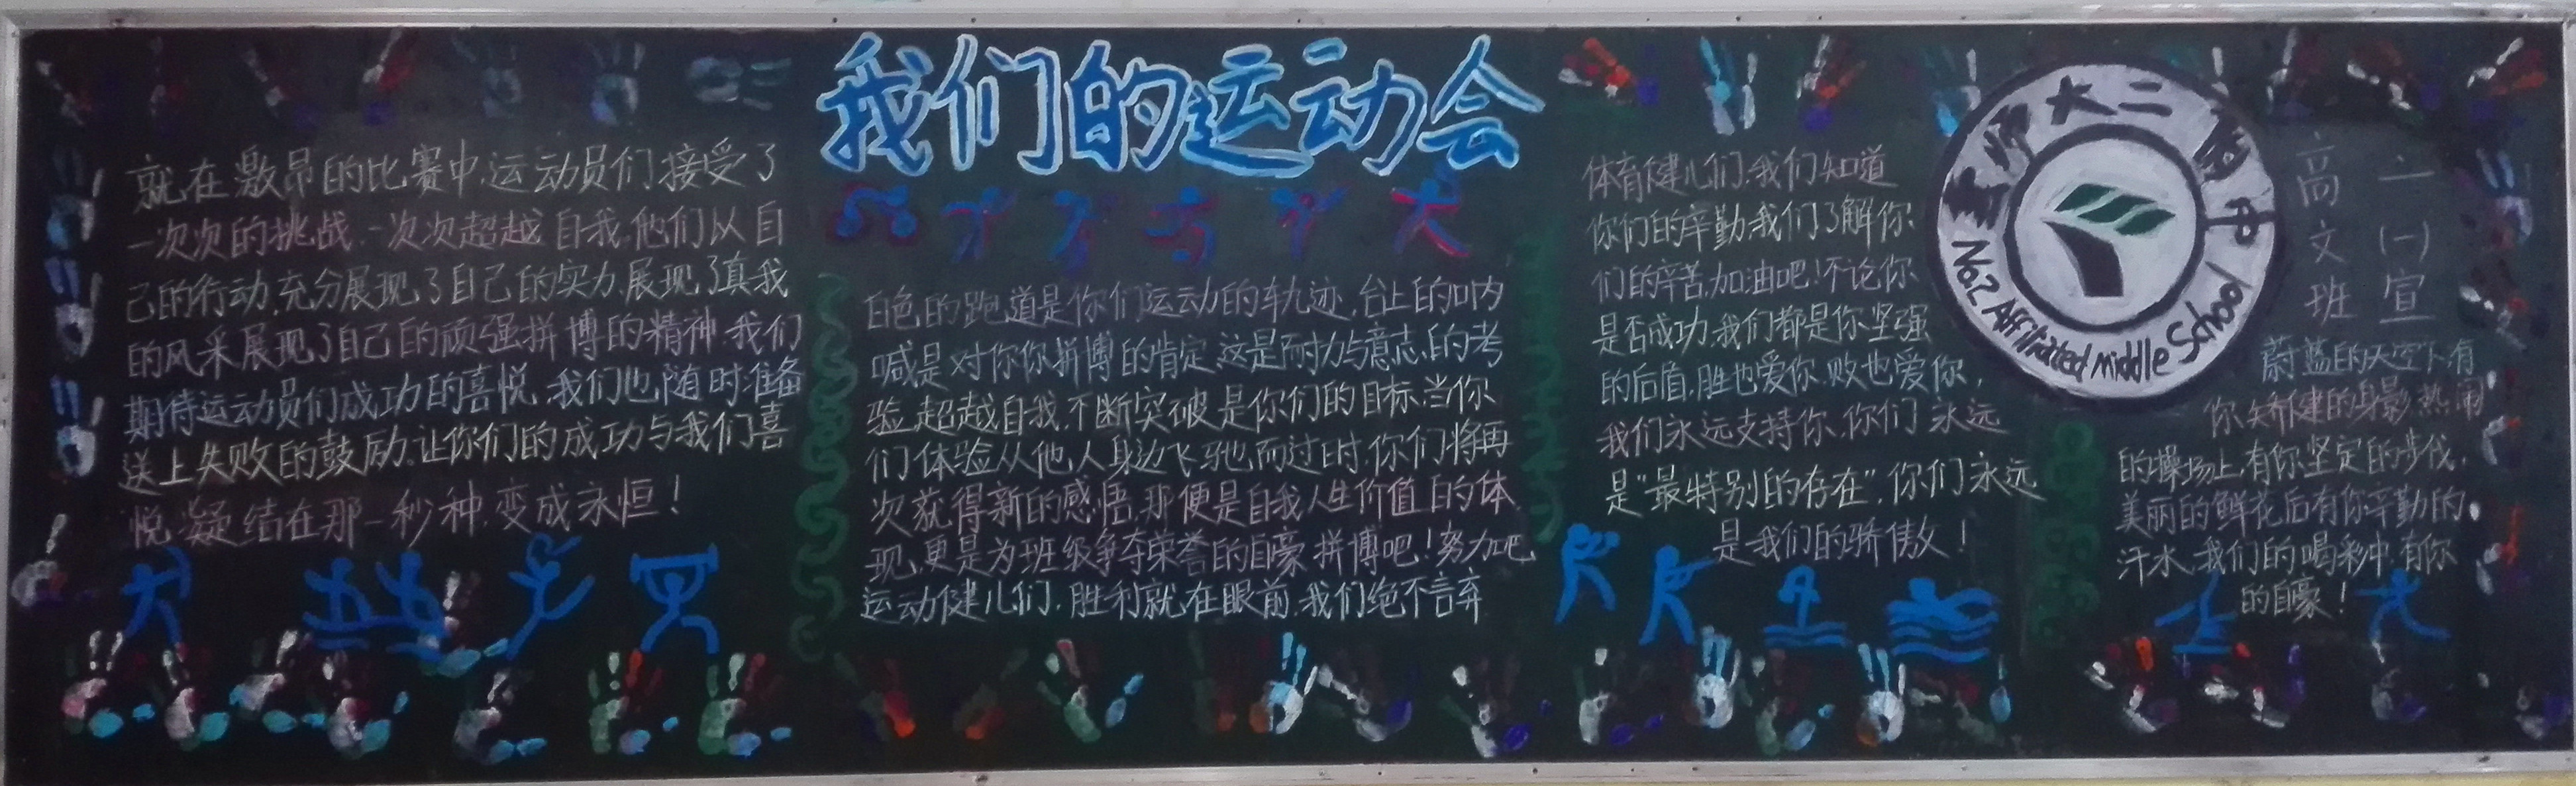 我们的运动会
就在激昂的比赛中,运动员们接受了
一次次的挑战,一次次超越自我,他们以自
己的行动,充分展现了自己的实力,展现了真我
的风采展现了自己的顽强拼博的精神,我们
期待运动员们成功的喜悦,我们也随时准备
送上失败的鼓励,让你们的成功与我们喜
悦,凝结在那一秒种,变成永恒!
白色的跑道是你们运动的轨迹,台上的呐
喊是对你你拼博的肯定,这是耐力与意志的考
验,超越自我,不断突破是你们的目标,当你
们体验从他人身边飞驰而过时,你们将再
次获得新的感悟,那便是自我人生价值的体
现,更是为班级争夺荣誉的自豪,拼博吧!努力吧
运动健儿们,胜利就在眼前,我们绝不言弃
体育健儿们,我们知道
你们的辛勤,我们了解你
们的辛苦,加油吧!不论你
是否成功,我们都是你坚强
的后盾,胜也爱你,败也爱你,
我们永远支持你,你们永远
是"最特别的存在",你们永远
是我们的骄傲!
师大二附中
No.2 Affiliated middle School
高二(一)
文班宣
蔚蓝的天空下,有
你矫健的身影,热闹
的操场上,有你坚定的步伐,
美丽的鲜花后有你辛勤的
汗水,我们的喝彩中,有你
的自豪!